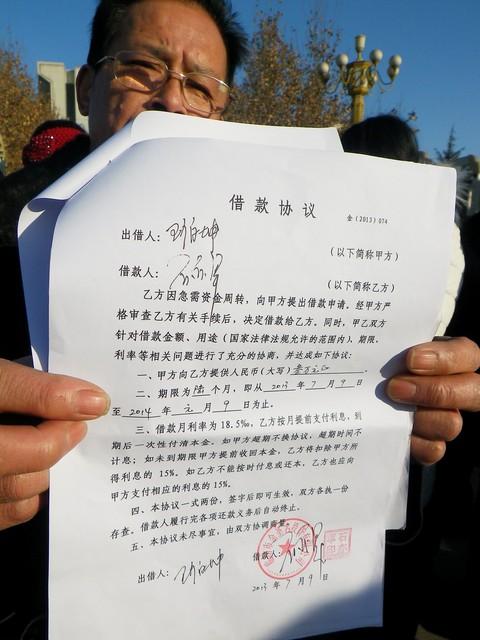 借款协议
金(2013)074
出借人:
(以下简称甲方)
借款人:
(以下简称乙方)
乙方因急需资金周转,向甲方提出借款申请。经甲方严
格审查乙方有关手续后,决定借款给乙方。同时,甲乙双方
针对借款金额、用途(国家法律法规允许的范围内)、期限、
利率等相关问题进行了充分的协商,并达成如下协议:
一、甲方向乙方提供人民币(大写)壹万元。
二、期限为陆个月,即从2013年7月9日
至2014年元月9日为止。
三、借款月利率为18.5‰,乙方按月提前支付利息,到
期后一次性付清本金。如甲方超期不换协议,超期时间不
计息;如未到期限甲方提前收回本金,乙方将扣除甲方所
得利息的15%。如乙方不能按时付息或还本,乙方也应向
甲方支付相应的利息的15%。
四、本协议一式两份,签字后即可生效,双方各执一份
存查。借款人履行完各项还款义务后自动终止。
五、本协议未尽事宜,由双方协调商量。
出借人:
借款人:
2013年7月9日